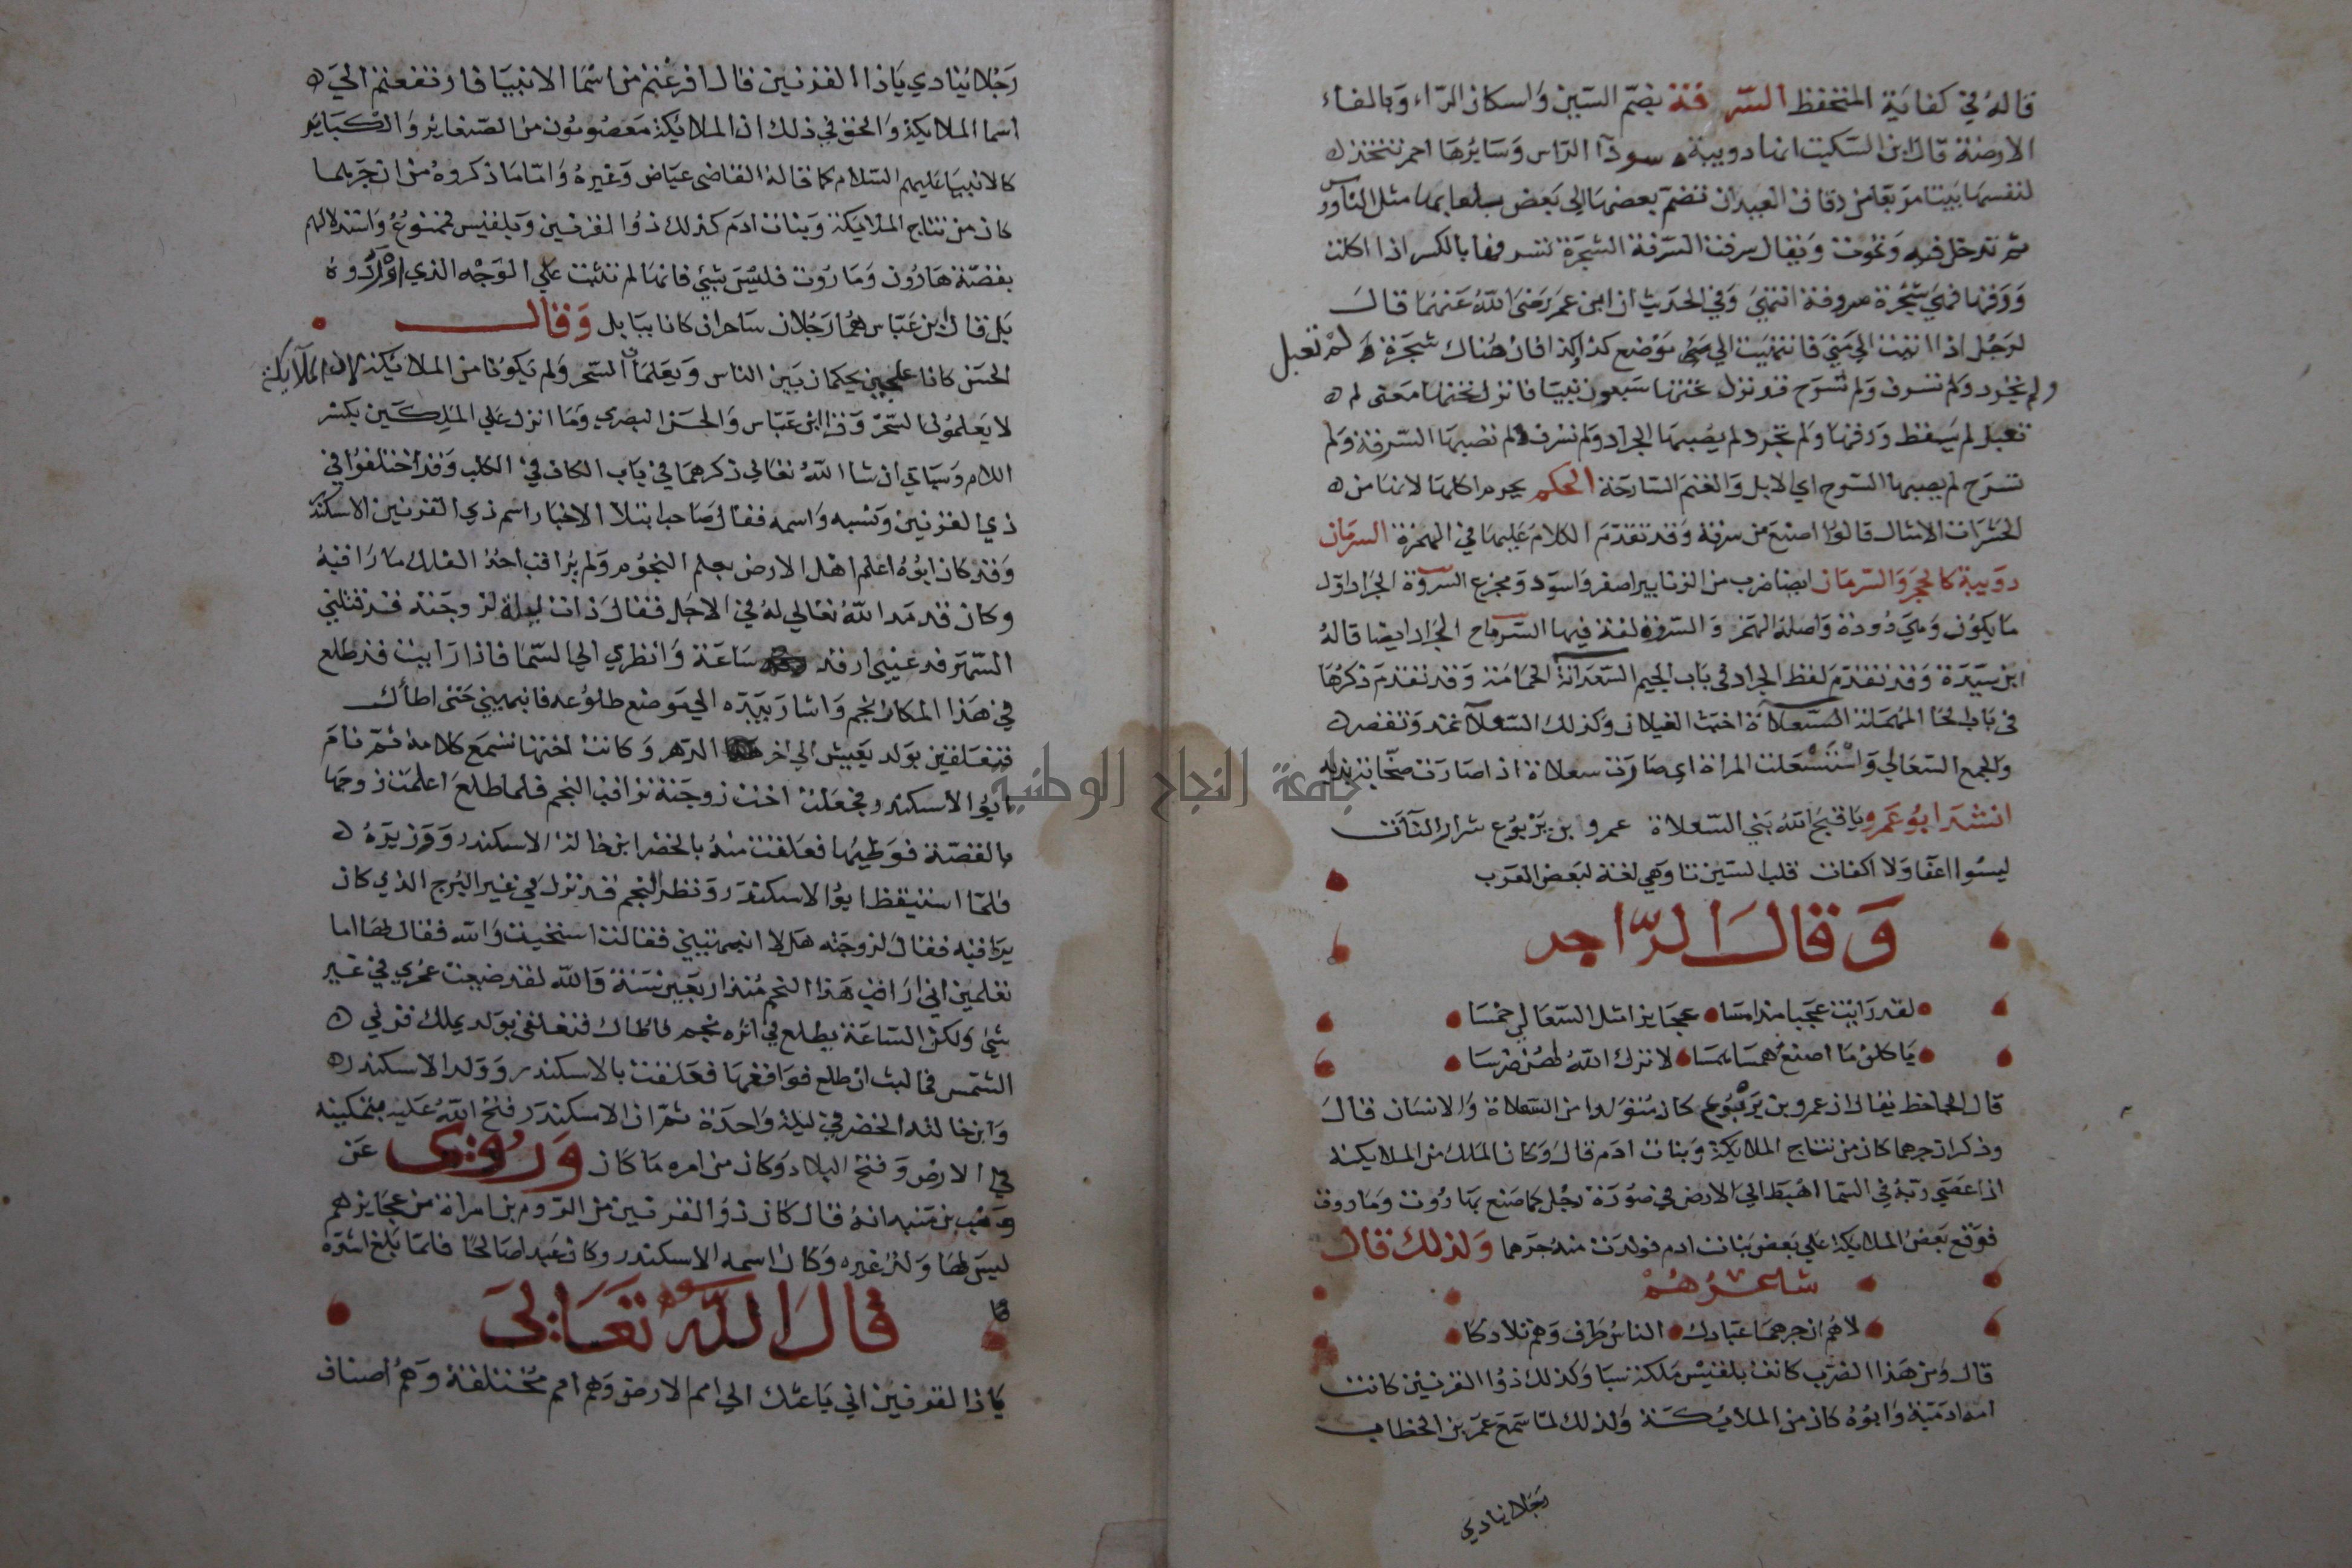 قاله في كفاية المتحفظ السرفة بضم السين واسكان الراء وبالفاء
الارضة قال ابن السكيت انها دويبة سودآ الراس وسايرها احمر تتخذ
لنفسها بيتا مربعا من دقاق العيدان تضم بعضها الى بعض بلعابها مثل الناووس
ثم تدخل فيه وتموت ويقال سرفت السرفة الشجرة تسرفها بالكسر اذا اكلت
ورقها فهي شجرة مسروفة انتهي وفي الحديث ان ابن عمر رضى الله عنهما قال
لرجل اذا اتيت الي مني فانتهيت الي موضع كذا وكذا فان هناك شجرة لم تعبل
ولم تجرد ولم تسرف ولم تسرح قد نزل تحتها سبعون نبيا فانزل تحتها معنى لم
تعبل لم يسقط ورقها ولم تجرد لم يصبها الجراد ولم تسرف لم تصبها السرفة ولم
تسرح لم يصبها السرح اي الابل والغنم السارحة الحكم يحرم اكلها لانها من
الحشرات الامثال قالوا اصنع من سرفة وقد تقدم الكلام عليها في الهمزة السرمان
دويبة كالحجر والسرمان ايضا ضرب من الزنابير اصفر واسود ومجزع السروة الجراد اول
ما يكون وهي دودة واصله الهمز والسروة لغة فيها السرماح الجراد ايضا قاله
ابن سيدة وقد تقدم لفظ الجراد في باب الجيم السعدانة الحمامة وقد تقدم ذكرها
في باب الحا المهملة السعلاة اخبث الغيلان وكذلك السعلآ تمد وتقصر
والجمع السعالي واستسعلت المراة اي صارت سعلاة اذا صارت صخابة بذية
انشد ابو عمرو يا قبح الله بني السعلاة عمرو بن يربوع شرار النات
ليسوا اعفا ولا اكفات قلب السين تا وهي لغة لبعض العرب
وقال الراجد
لقد رايت عجبا مذ امسا عجايزا مثل السعالي خمسا
ياكلن ما اصنع همسا همسا لا ترك الله لهن ضرسا
قال الجاحظ يقال ان عمرو بن يربوع كان متولدا من السعلاة والانسان قال
وذكر ان جرهما كان من نتاج الملايكة وبنات ادم قال وكان الملك من الملايكة
اذا عصى ربه في السما اهبط الي الارض في صورة رجل كما صنع بهاروت وماروت
فوقع بعض الملايكة علي بعض بنات ادم فولدت منه جرهما ولذلك قال
شاعرهم
لاهم ان جرهما عبادك الناس طرف وهم تلادكا
قال ومن هذا الضرب كانت بلقيس ملكة سبا وكذلك ذوا القرنين كانت
امه ادمية وابوه كان من الملايكة ولذلك لما سمع عمر بن الخطاب
رجلا ينادي
رجلا ينادي يا ذا القرنين قال افرغتم من اسما الانبيا فارتفعتم الي
اسما الملايكة والحق في ذلك ان الملايكة معصومون من الصغاير والكباير
كالانبيا عليهم السلام كما قاله القاضى عياض وغيره واما ما ذكروه من ان جرهما
كان من نتاج الملايكة وبنات ادم كذلك ذوا القرنين وبلقيس فممنوع واستدلالهم
بقصة هاروت وماروت فليس بشي فانها لم تثبت علي الوجه الذي اوردوه
بل قال ابن عباس هما رجلان ساحران كانا ببابل وقال
الحسن كانا علجين يحكمان بين الناس ويعلمان السحر ولم يكونا من الملايكة لان الملآيكة
لا يعلمون السحر وقرا ابن عباس والحسن البصري وما انزل علي الملكين بكسر
اللام وسياتي ان شا الله تعالي ذكرهما في باب الكاف في الكلب وقد اختلفوا في
ذي القرنين ونسبه واسمه فقال صاحب ابتلآ الاخيار اسم ذي القرنين الاسكندر
وقد كان ابوه اعلم اهل الارض بعلم النجوم ولم يراقب احد الفلك ما راقبه
وكان قد مد الله تعالي له في الاجل فقال ذات ليلة لزوجته قد قتلني
السهر فدعيني ارقد ساعة وانظري الي السما فاذا رايت قد طلع
في هذا المكان نجم واشار بيده الي موضع طلوعه فانبهيني حتى اطأك
فتعلقين بولد يعيش الي اخر الدهر وكانت اختها تسمع كلامه ثم نام
ابو الاسكندر فجعلت اخت زوجته تراقب النجم فلما طلع اعلمت زوجها
بالقصة فوطيها فعلقت منه بالخضر ابن خالة الاسكندر ووزيره
فلما استيقظ ابو الاسكندر ونظر النجم قد نزل في غير البرج الذي كان
يراقبه فقال لزوجته هلا انبهتيني فقالت استحيت والله فقال لها اما
تعلمين اني اراقب هذا النجم منذ اربعين سنة والله لقد ضيعت عمري في غير
شئ ولكن الساعة يطلع في اثره نجم فاطاك فتعلقي بولد يملك قرني
الشمس فما لبث ان طلع فواقعها فعلقت بالاسكندر وولد الاسكندر
وابن خالته الخضر في ليلة واحدة ثم ان الاسكندر فتح الله عليه بتمكينه
في الارض وفتح البلاد وكان من امره ما كان وروى عن
وهب بن منبه انه قال كان ذو القرنين من الروم بن امراة من عجايزهم
ليس لها ولد غيره وكان اسمه الاسكندر وكان عبدا صالحا فلما بلغ اشده
قال الله تعالى
يا ذا القرنين اني باعثك الي امم الارض وهم امم مختلفة وهم اصناف
جامعة النجاح الوطنية